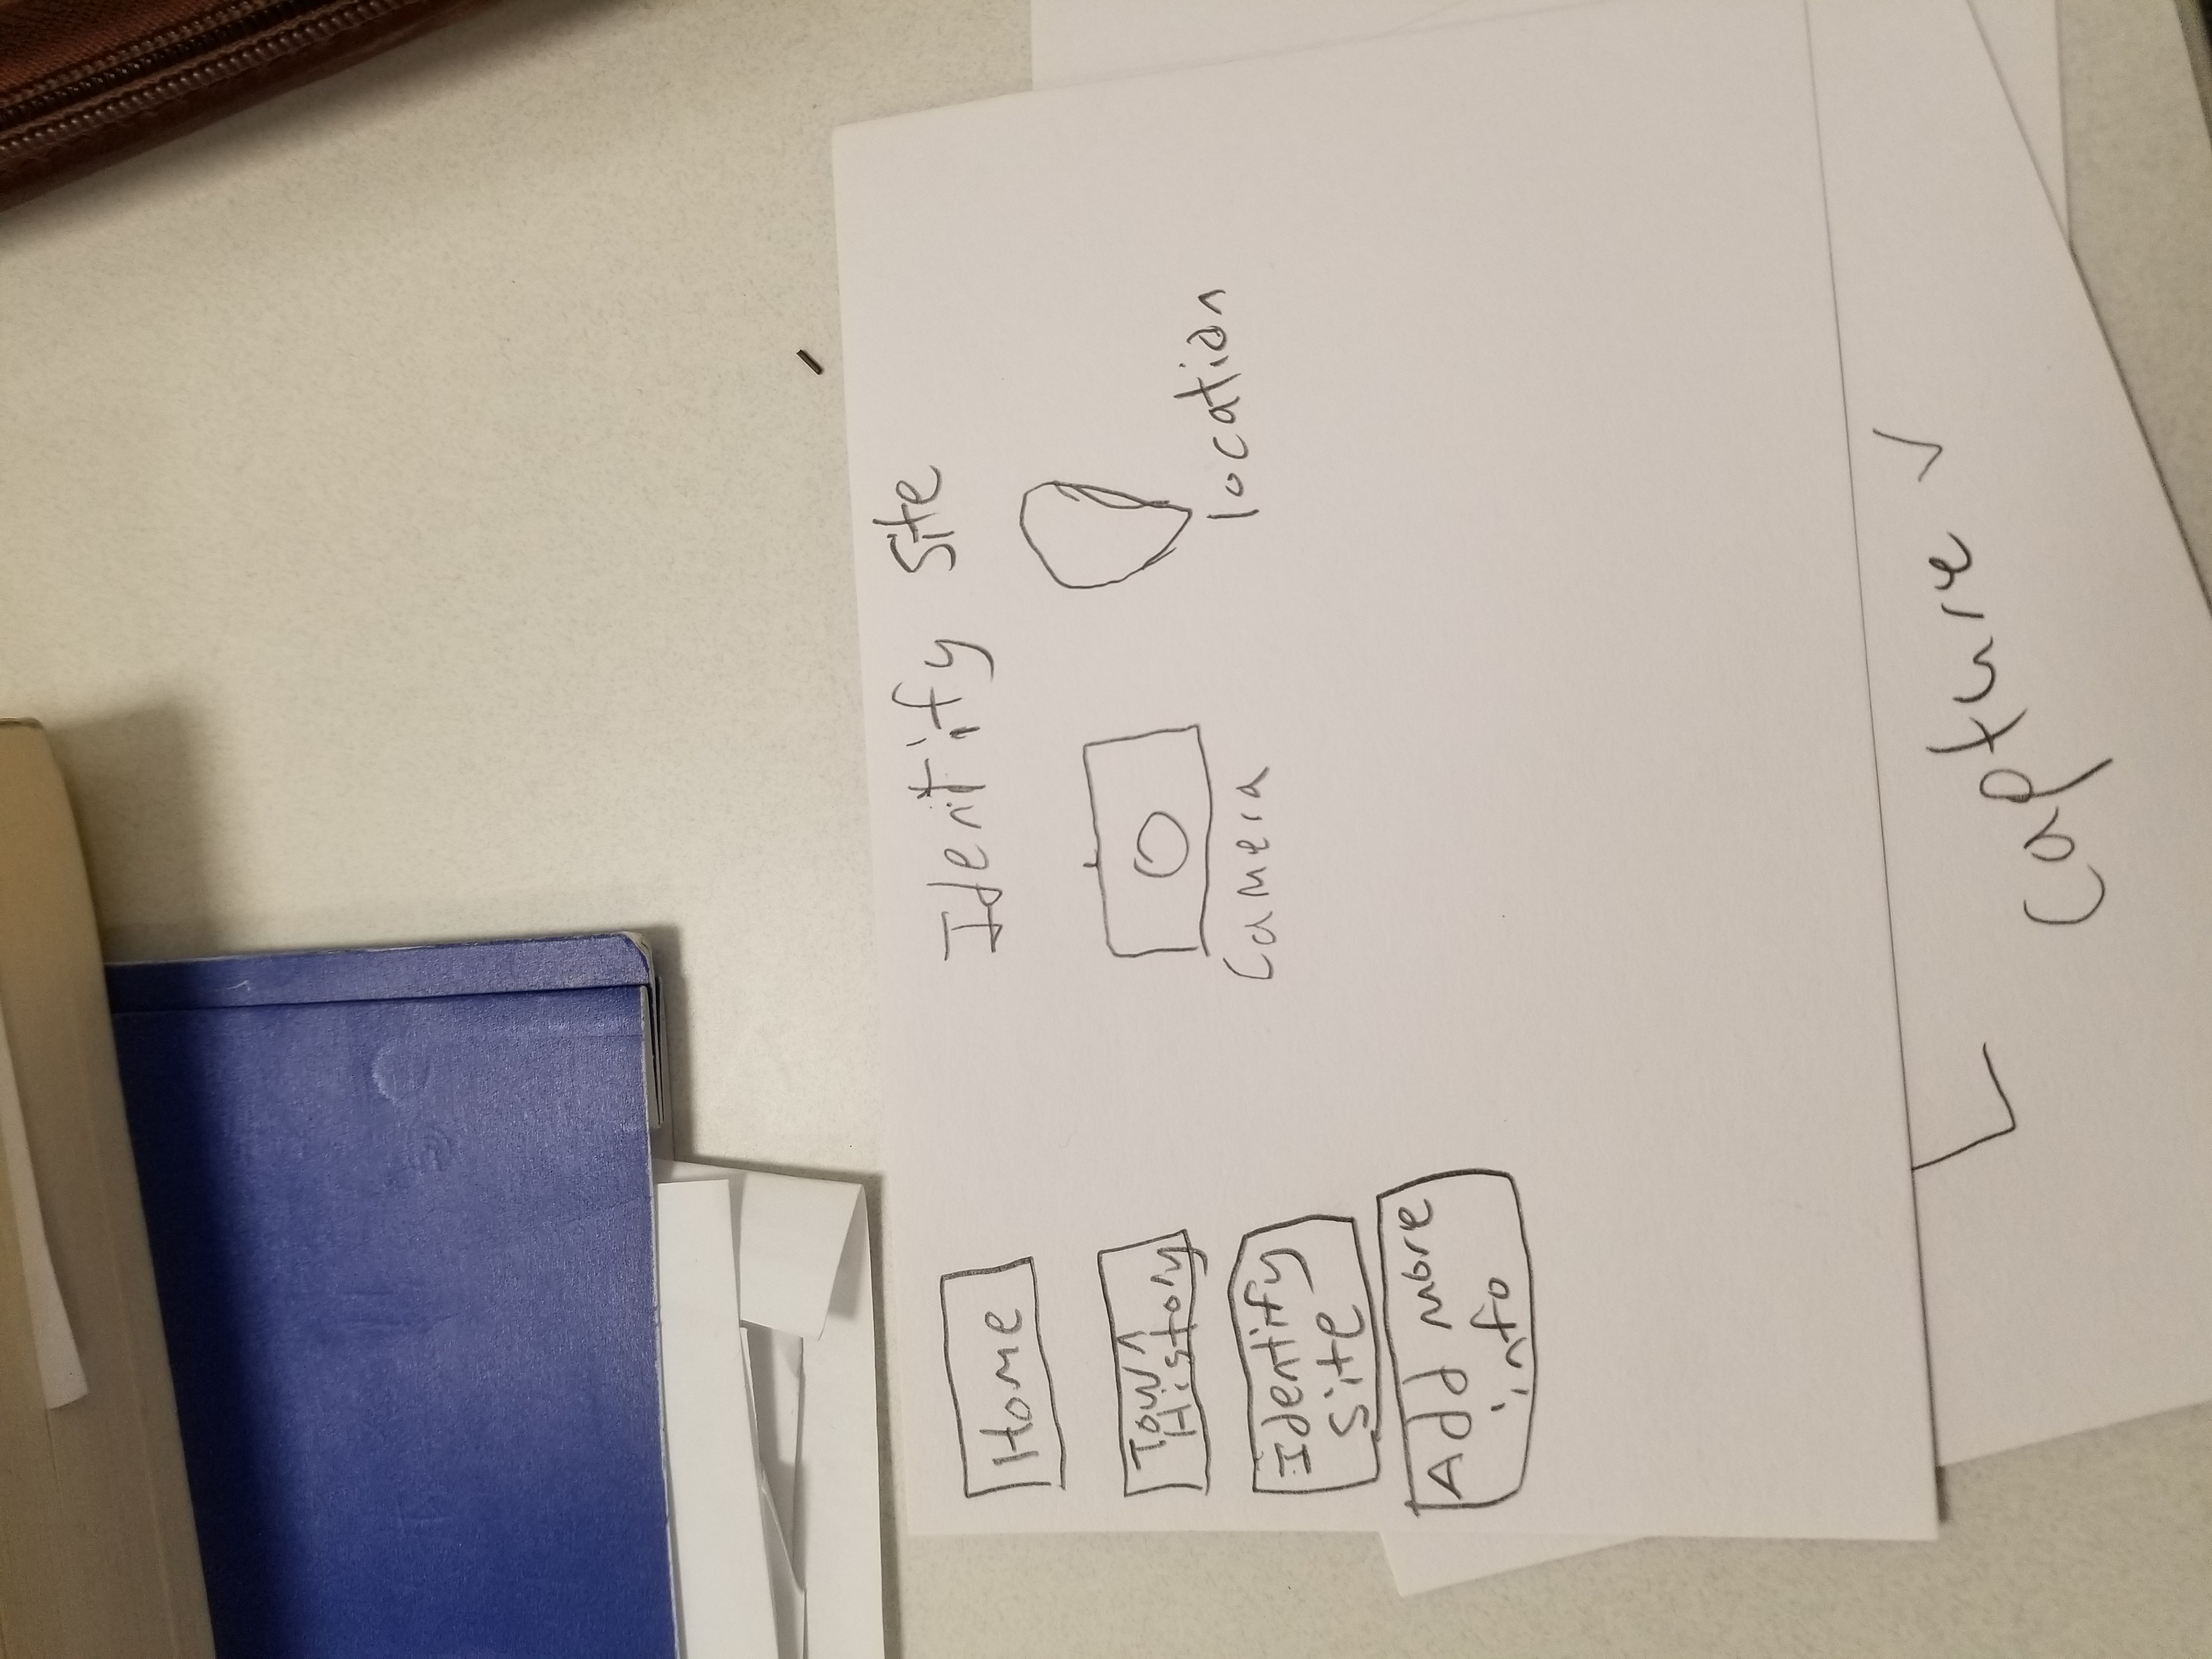 Identify Site
Home
Town
History
Identify
Site
Add more
info
Camera
location
Capture ✓